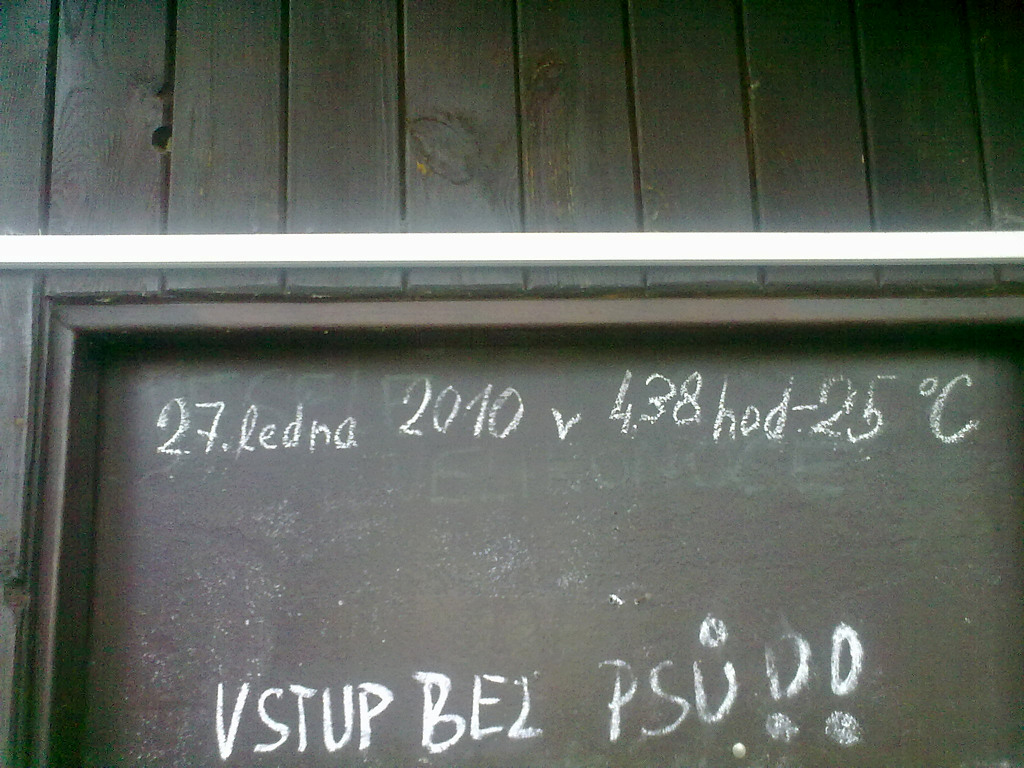 27. ledna 2010 v 4.38 hod -25 °C
VSTUP BEZ PSŮ!!